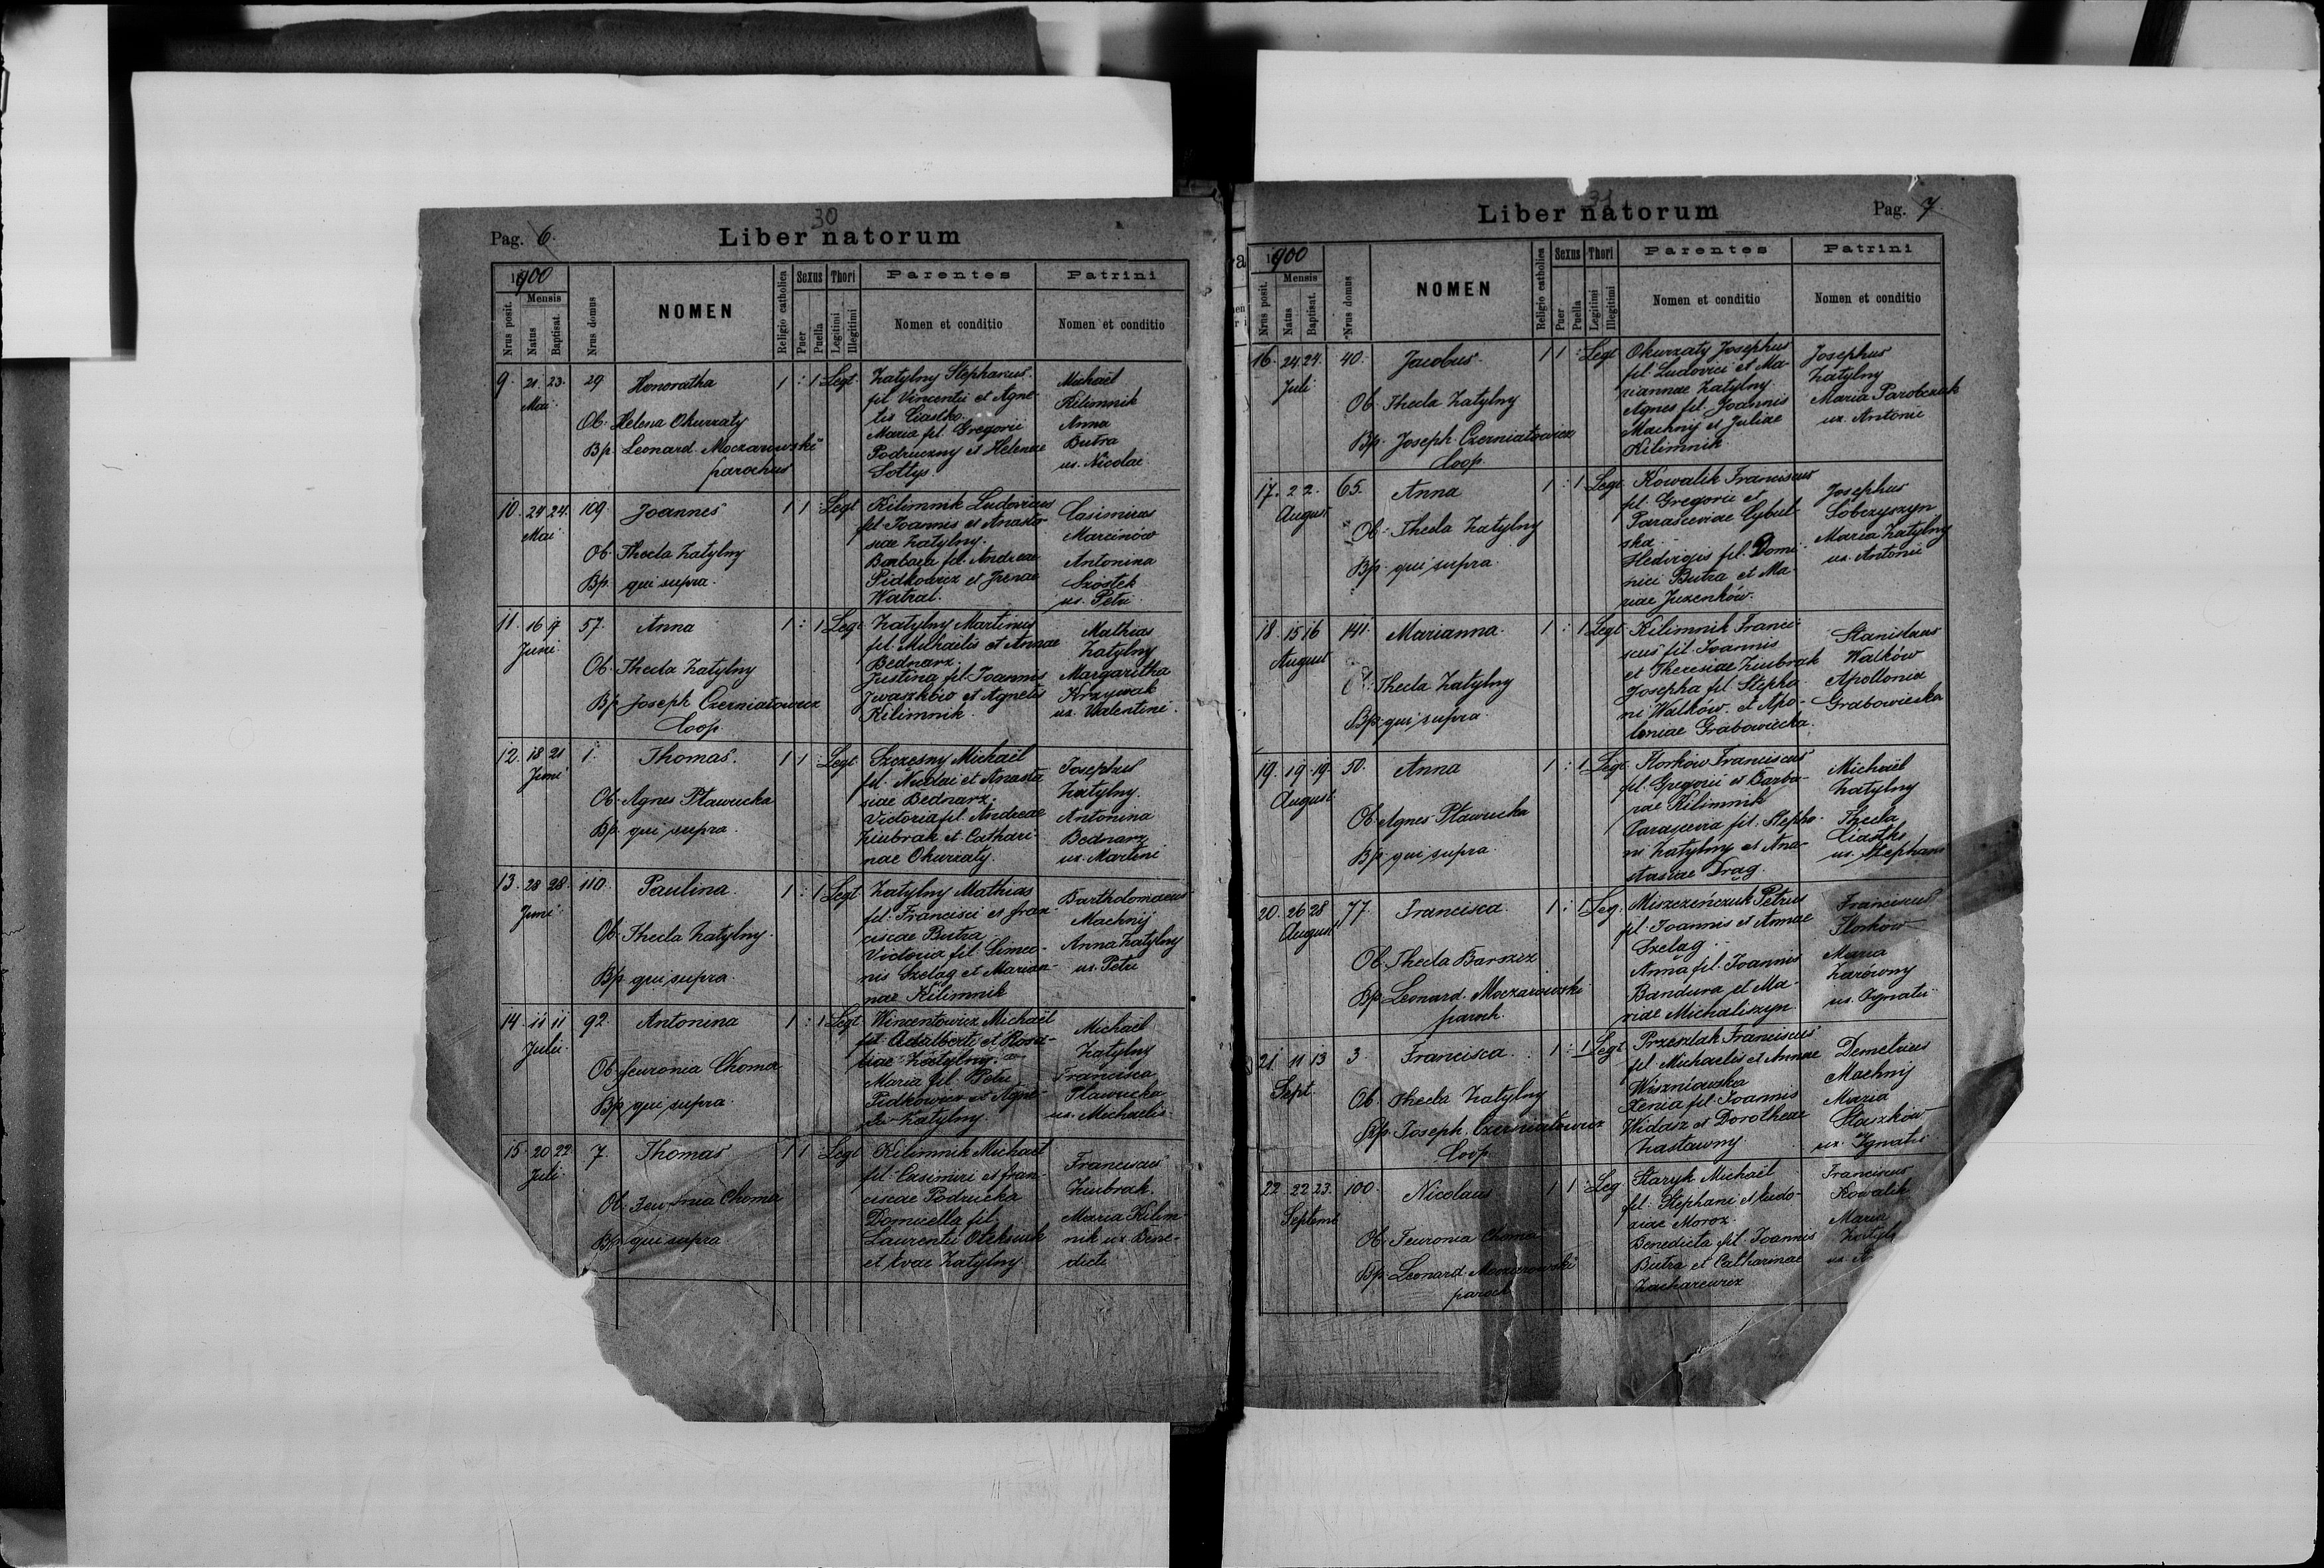 30
Pag. 6.
Liber natorum
1900
Nrus posit.
Mensis
Natus
Baptisat.
Nrus domus
NOMEN
Religio catholica
Sexus
Puer
Puella
Thori
Legitimi
Illegitimi
Parentes
Nomen et conditio
Patrini
Nomen et conditio
9. 21. 23. Mai 29 Honoratha 1 : 1 Legt.
Ob. Helena Okurzaty
Bp. Leonard Moczarowski
parochus
Zatylny Stephanus
fil Vincentii et Agne-
tis Ciastko
Maria fil. Gregorii
Podruczny et Helenae
Sottys.
Michaël
Kilimnik
Anna
Butra
ux. Nicolai
10. 24 24. Mai 109. Joannes 1 1 : Legt
Ob. Thecla Zatylny
Bp. qui supra.
Kilimnik Ludovicus
fil. Joannis et Anasta-
siae Zatylny.
Barbara fil. Andreae
Pidkowicz et Irenae
Watral.
Casimirus
Marcinów
Antonina
Szostek
ux. Petri
11. 16 17 Juni 57. Anna 1 : 1 Legt
Ob. Thecla Zatylny
Bp. Joseph Czerniatowicz
Coop.
Zatylny Martinus
fil. Michaëlis et Annae
Bednarz.
Justina fil. Joannis
Iwaszków et Agnetis
Kilimnik.
Mathias
Zatylny
Margaritha
Krzywak
ux. Valentini.
12. 18 21 Juni 1. Thomas. 1 1 : Legt
Ob. Agnes Pławucka
Bp. qui supra.
Szczesny Michaël
fil. Nicolai et Anasta-
siae Bednarz.
Victoria fil. Andreae
Ziubrak et Cathari-
nae Okurzaty.
Josephus
Zatylny.
Antonina
Bednarz
ux. Martini
13. 28 28. Juni 110. Paulina. 1 : 1 Legt
Ob. Thecla Zatylny.
Bp. qui supra.
Zatylny Mathias
fil. Francisci et Fran-
ciscae Butra
Victoria fil. Simeo-
nis Szeląg et Marian-
nae Kilimnik
Bartholomaeus
Machnij
Anna Zatylny
ux. Petri
14. 11 11 Julii. 92. Antonina 1 : 1 Legt
Ob. Feuronia Choma
Bp. qui supra.
Wincentowicz Michaël
fil. Adalberti et Rosa-
liae Zatylny.
Maria fil. Petri
Pidkowicz et Agne-
tis Zatylny.
Michaël
Zatylny
Francisca
Pławucka
ux. Michaelis
15. 20 22 Juli 7. Thomas 1 1 : Legt
Ob. Feuronia Choma
Bp. qui supra.
Kilimnik Michael
fil. Casimiri et Fran-
ciscae Podrucka
Domicella fil.
Laurentii Oleksiuk
et Evae Zatylny
Franciscus
Ziubrak.
Maria Kilim-
nik ux. Bene-
dicti
31
Liber natorum
Pag. 7.
1900
Nrus posit.
Mensis
Natus
Baptisat.
Nrus domus
NOMEN
Religio catholica
Sexus
Puer
Puella
Thori
Legitimi
Illegitimi
Parentes
Nomen et conditio
Patrini
Nomen et conditio
16. 24 24. Juli 40. Jacobus. 1 1 : Legt
Ob. Thecla Zatylny
Bp. Joseph. Czerniatowicz
Coop.
Okurzaty Josephus
fil. Ludovici et Ma-
riannae Zatylny.
Agnes fil. Joannis
Machnij et Juliae
Kilimnik
Josephus
Zatylny
Maria Parobczuk
ux. Antonii
17. 2 2. August 65. Anna 1 : 1 Legt
Ob. Thecla Zatylny
Bp. qui supra.
Kowalik Franciscus
fil. Gregorii et
Parasceviae Cybul-
ska.
Hedvigis fil. Domi-
nici Butra et Ma-
riae Juzenków.
Josephus
Sobczyszyn
Maria Zatylny
ux. Antonii
18. 15 16 August 141. Marianna. 1 : 1 Legt
Ob. Thecla Zatylny
Bp. qui supra.
Kilimnik Franci-
scus fil. Joannis
et Theresiae Ziubrak
Josepha fil. Stepha-
ni Walków. et Apo-
loniae Grabowiecka.
Stanislaus
Walków
Apollonia
Grabowiecka
19. 19 19. August 50. Anna 1 : 1 Legt
Ob. Agnes Pławucka
Bp. qui supra.
Florków Franciscus
fil. Gregorii et Barba-
rae Kilimnik
Parascevia fil. Stepha-
ni Zatylny et Ana-
stasiae Drąg.
Michaël
Zatylny
Thecla
Ciastko
ux. Stephani
20. 26 28 August 77. Francisca. 1 : 1 Leg.
Ob. Thecla Barszcz
Bp. Leonard. Moczarowski
paroch.
Miszczeńczuk Petrus
fil. Joannis et Annae
Szeląg.
Anna fil. Joannis
Bandura et Ma-
riae Michaliszyn
Franciscus
Florków
Maria
Zarówny
ux. Ignatii
21. 11 13 Sept. 3. Francisca. 1 : 1 Legt
Ob. Thecla Zatylny
Bp. Joseph. Czerniatowicz
Coop.
Przeszlak Franciscus
fil. Michaelis et Annae
Wiszniowska
Xenia fil. Joannis
Widasz et Dorotheae
Zastawny
Demetrius
Machnij
Maria
Staszków
ux. Ignatii
22 22 23. Septemb 100. Nicolaus 1 1 : Leg.
Ob. Feuronia Choma
Bp. Leonard Moczarowski
paroch
Staryk Michaël
fil. Stephani et Eudo-
xiae Moroz.
Benedicta fil. Joannis
Butra et Catharinae
Zacharewicz
Franciscus
Kowalik
Maria
Zatyl
ux.